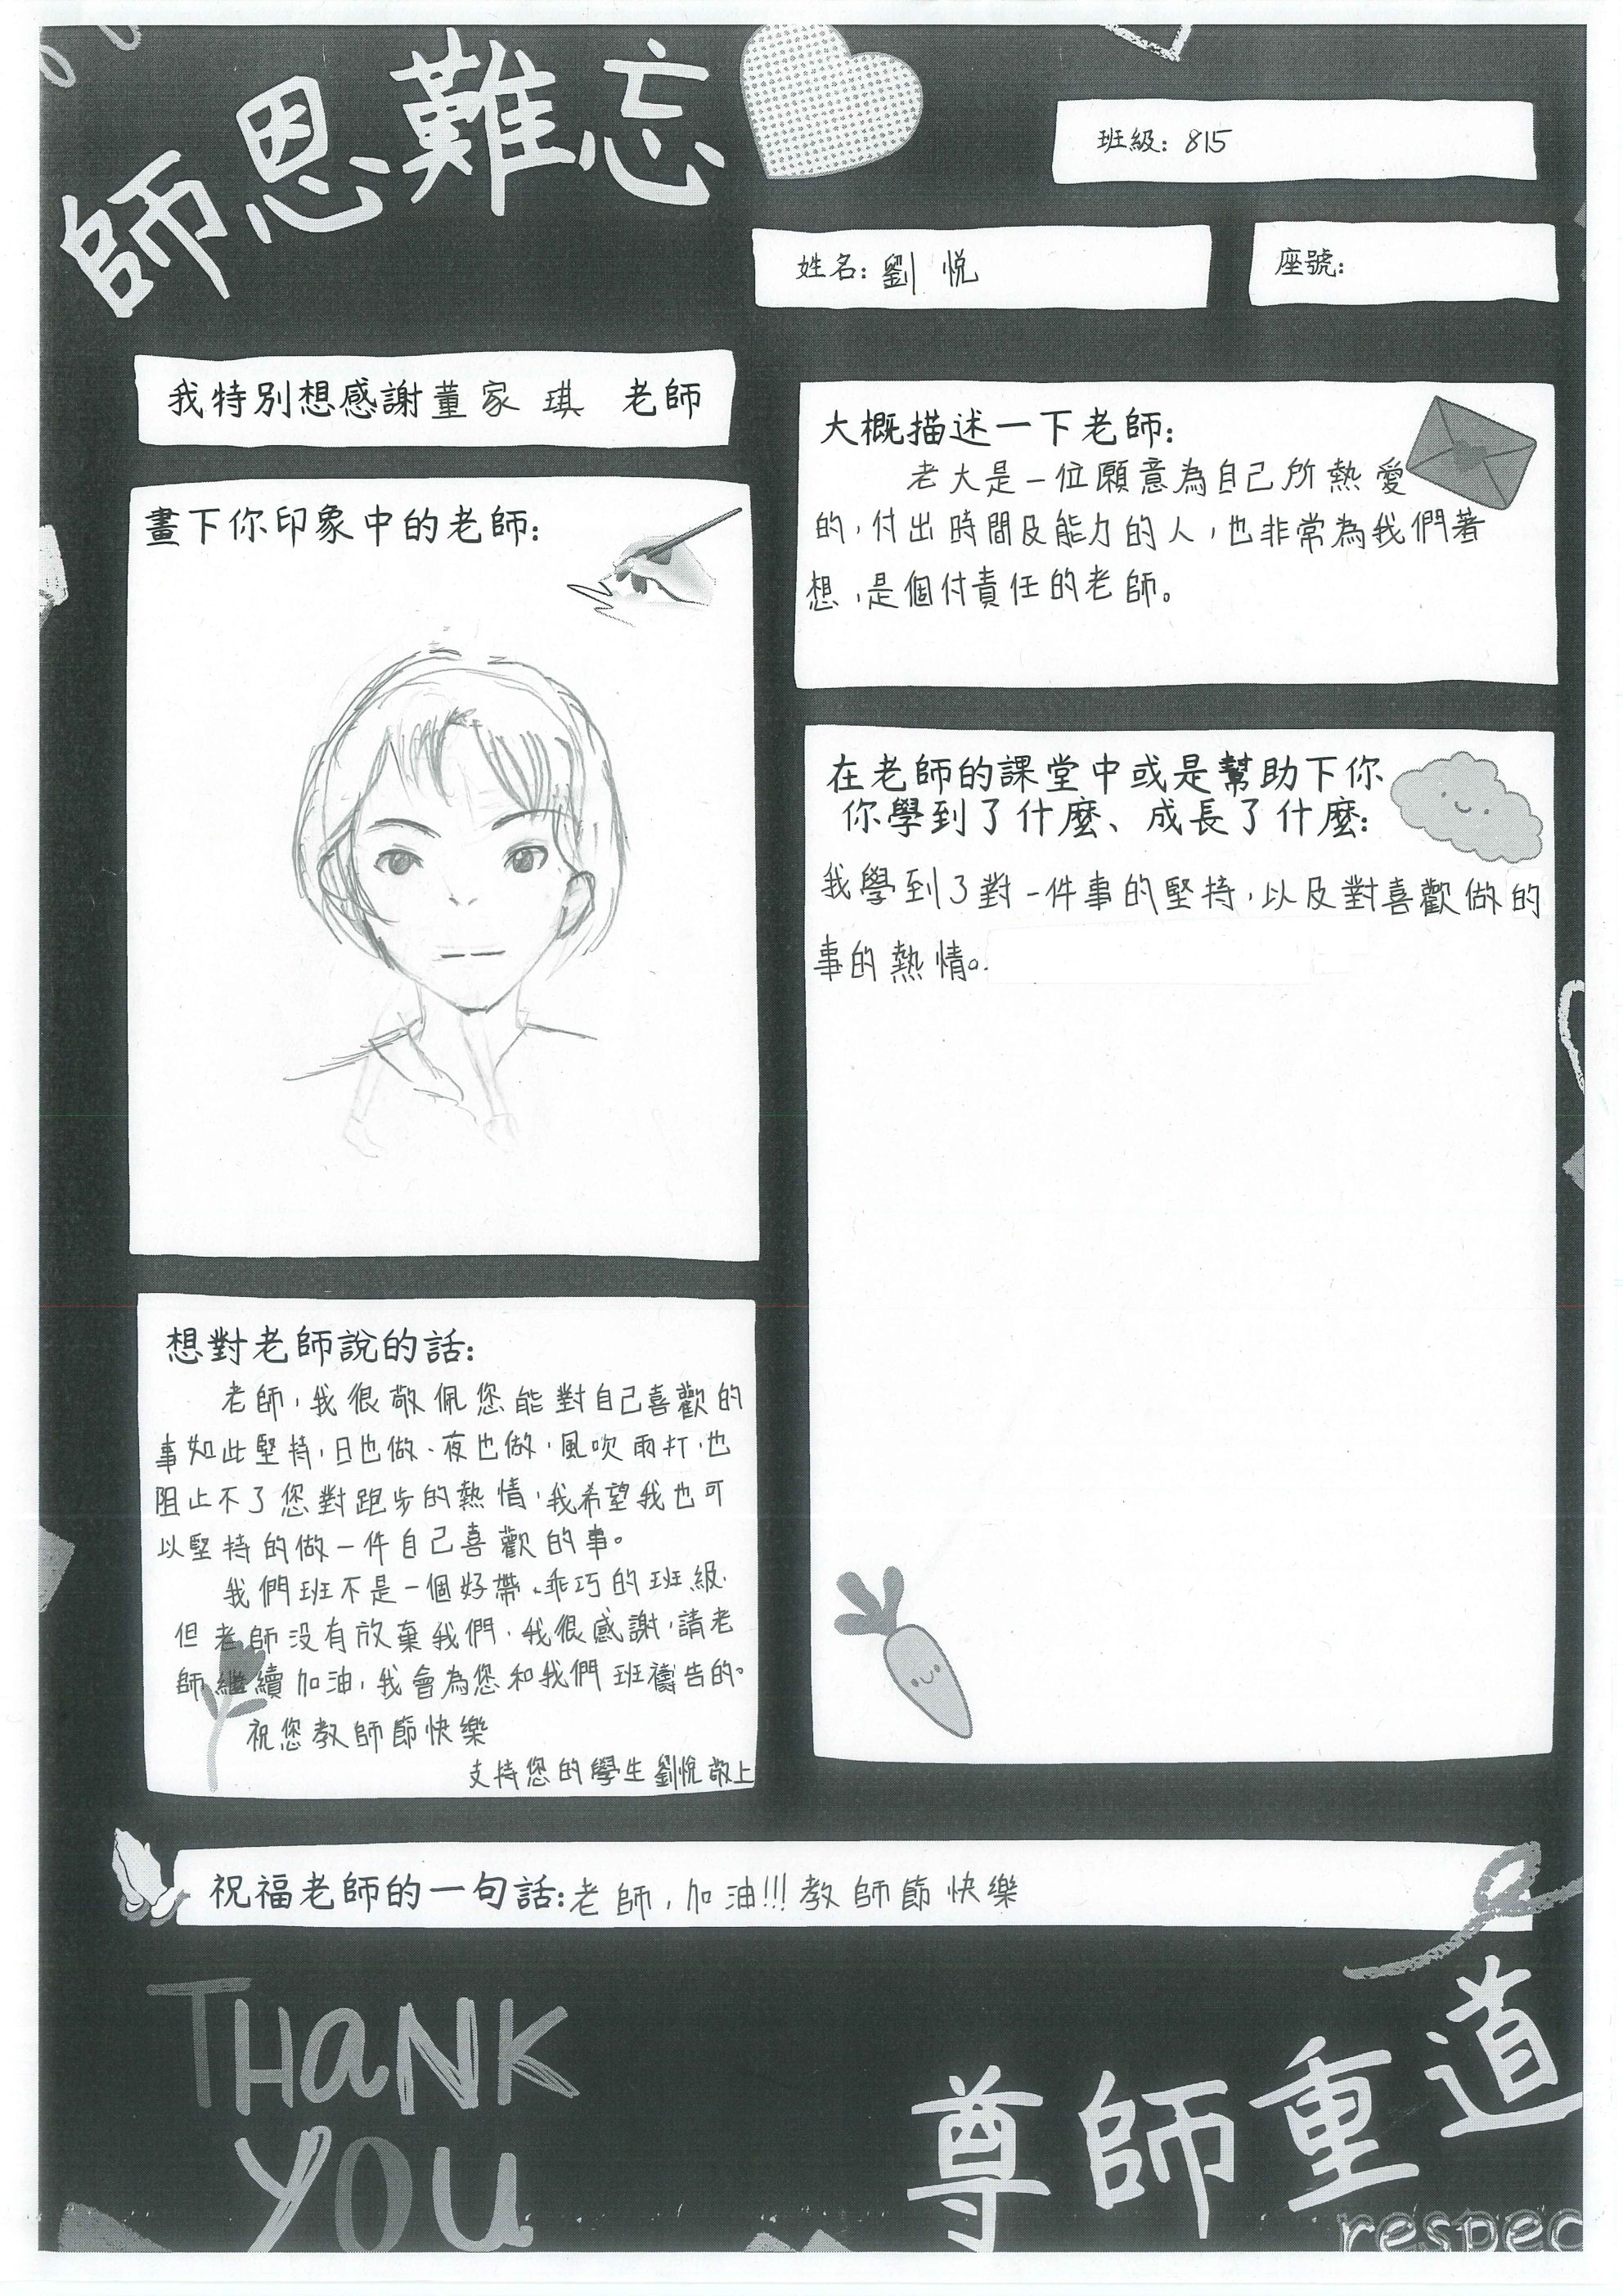 師恩難忘
班級: 815
姓名: 劉 悅
座號:
我特別想感謝董家琪 老師
畫下你印象中的老師:
大概描述一下老師:
老大是一位願意為自己所熱愛
的,付出時間及能力的人,也非常為我們著
想,是個付責任的老師。
在老師的課堂中或是幫助下你
你學到了什麼、成長了什麼:
我學到了對一件事的堅持,以及對喜歡做的
事的熱情。
想對老師說的話:
老師,我很敬佩您能對自己喜歡的
事如此堅持,日也做、夜也做,風吹雨打,也
阻止不了您對跑步的熱情,我希望我也可
以堅持的做一件自己喜歡的事。
我們班不是一個好帶、乖巧的班級,
但老師沒有放棄我們,我很感謝,請老
師繼續加油,我會為您和我們班禱告的。
祝您教師節快樂
支持您的學生劉悅敬上
祝福老師的一句話:老師,加油!!!教師節快樂
THANK
YOU
尊師重道
respec